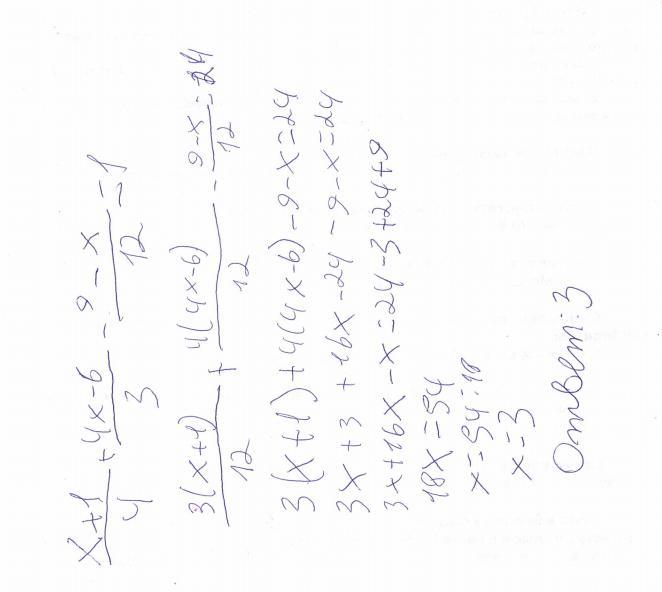 (x+1)/4 + (4x-6)/3 - (9-x)/12 = 1
3(x+1)/12 + 4(4x-6)/12 - (9-x)/12 = 24
3(x+1)+4(4x-6)-9-x=24
3x+3+16x-24-9-x=24
3x+16x-x=24-3+24+9
18x=54
x=54:18
x=3
Ответ: 3